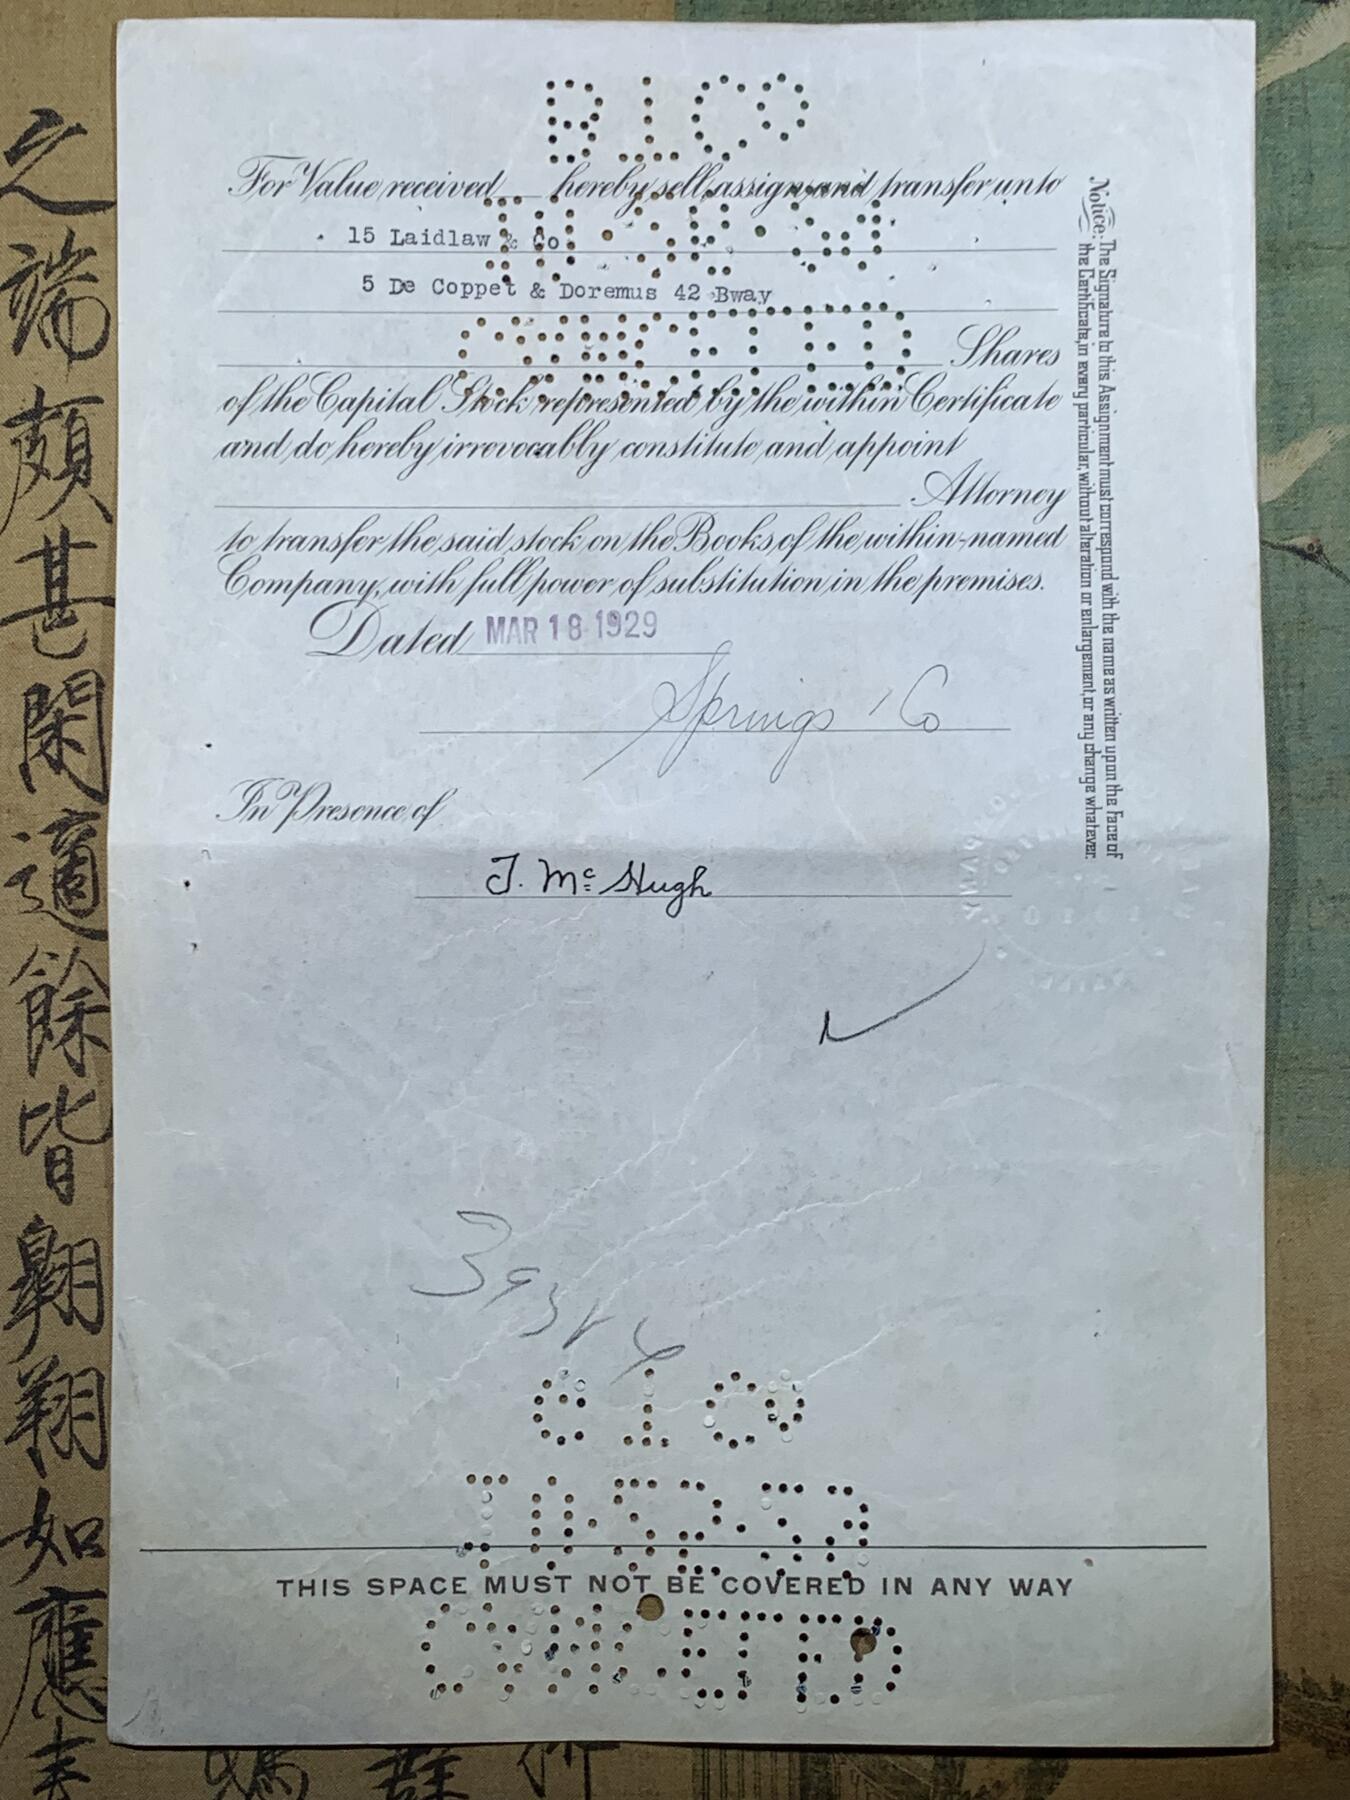 For Value received ___ hereby sell, assign and transfer unto
15 Laidlaw & Co.
5 De Coppet & Doremus 42 Bway
Shares
of the Capital Stock represented by the within Certificate
and do hereby irrevocably constitute and appoint
Attorney
to transfer the said stock on the Books of the within-named
Company, with full power of substitution in the premises.
Dated MAR 18 1929
Springs & Co
In Presence of
J. McHugh
THIS SPACE MUST NOT BE COVERED IN ANY WAY
Notice: The Signature to this Assignment must correspond with the name as written upon the face of
the Certificate, in every particular, without alteration or enlargement, or any change whatever.
之端頗甚閑適餘皆翱翔如應